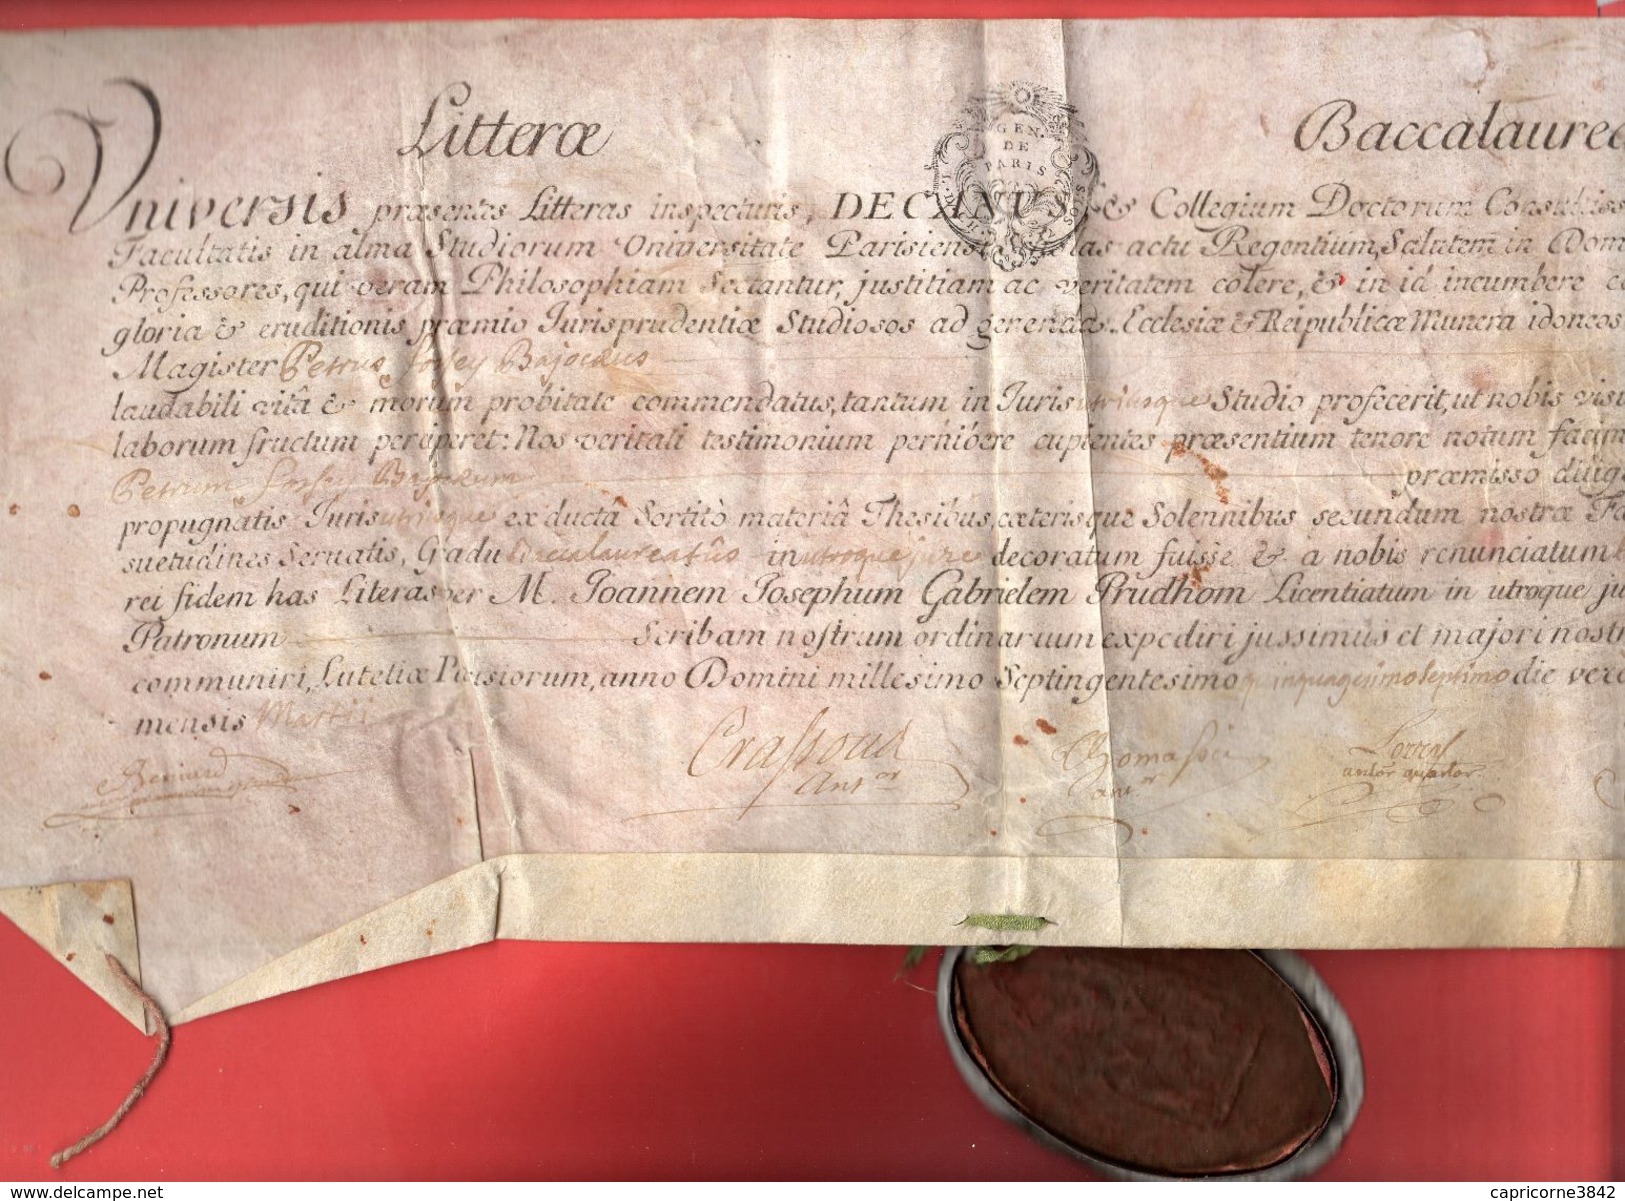 Litteræ Baccalaurea
GEN.
DE
PARIS
Vniversis præsentes Litteras inspecturis, DECANUS, & Collegium Doctorum Consultiss
Facultatis in alma Studiorum Vniversitate Parisiensi actu Regentium, Salutem in Dom
Professores, qui veram Philosophiam Sectantur, justitiam ac veritatem colere, & in id incumbere
gloria & eruditionis præmio Jurisprudentiæ Studiosos ad gerenda Ecclesiæ & Reipublicæ Munera idoneos
Magister Petrus Bajocæus
laudabili vitâ & morum probitate commendatus, tantum in Juris utriusque Studio profecerit, ut nobis vis
laborum fructum perciperet: Nos veritati testimonium perhibere cupientes præsentium tenore notum facim
Petrum præmisso dilig
propugnatis Juris utriusque ex ductâ Sortitò materiâ Thesibus, cæterisque Solennibus secundum nostræ Fa
suetudines Servatis, Gradu Baccalaureatûs in utroque jure decoratum fuisse & a nobis renunciatum
rei fidem has Literas per M. Joannem Josephum Gabrielem Prudhom Licentiatum in utroque ju
Patronum Scribam nostrum ordinarium expediri jussimus et majori nostr
communiri, Lutetiæ Parisiorum, anno Domini millesimo Septingentesimo quinquagesimo septimo die verò
mensis Martii
Crassous
www.delcampe.net capricorne3842